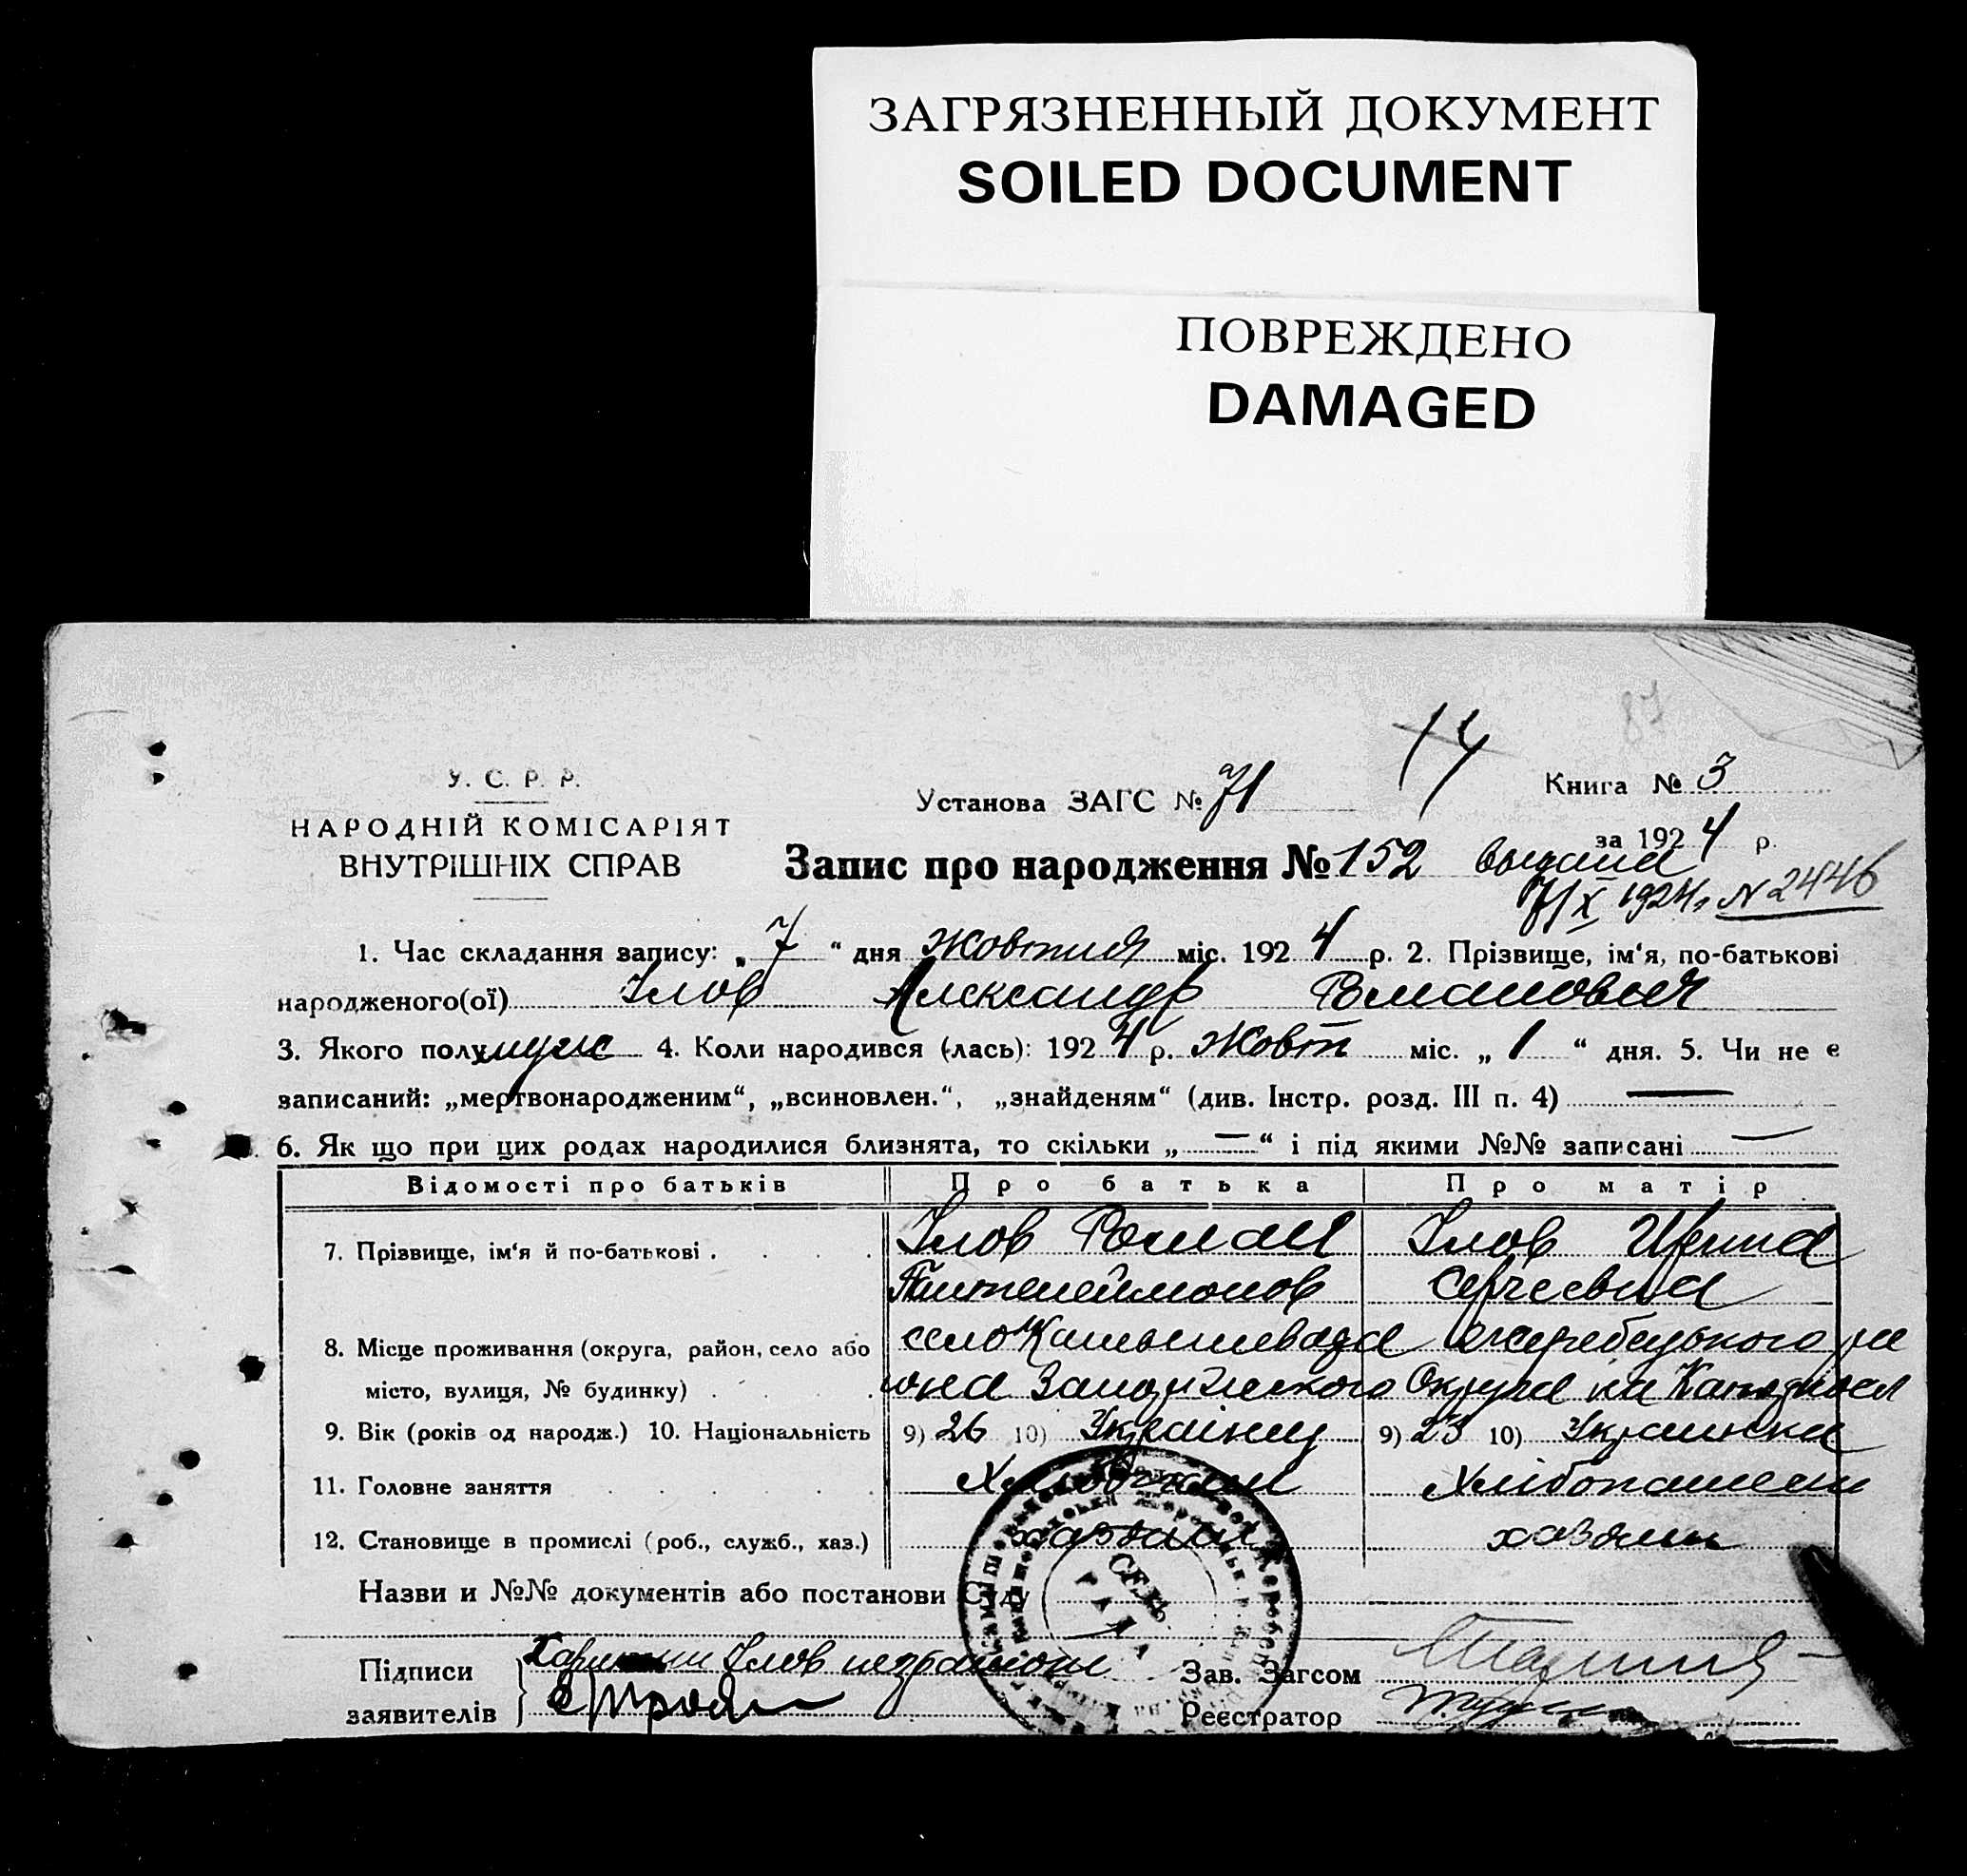 ЗАГРЯЗНЕННЫЙ ДОКУМЕНТ
SOILED DOCUMENT
ПОВРЕЖДЕНО
DAMAGED
87
14
У. С. Р. Р.
НАРОДНІЙ КОМІСАРІЯТ
ВНУТРІШНІХ СПРАВ
Установа ЗАГС № 71
Книга № 3
за 1924 р.
Запис про народження № 152
выписа
7/X 1924 г. N 2446
1. Час складання запису: „ 7 “ дня Жовтня міс. 1924 р. 2. Прізвище, ім‘я, по-батькові
народженого(ої) Ілов Александр Романович
3. Якого полу муж 4. Коли народився (-лась): 1924 р. Жовт міс. „ 1 “ дня. 5. Чи не є
записаний: „мертвонародженим“, „всиновлен.“, „знайденям“ (див. Інстр. розд. III п. 4) —
6. Як що при цих родах народилися близнята, то скільки „ — “ і під якими №№ записані —
Відомості про батьків Про батька Про матір
7. Прізвище, ім‘я й по-батькові . Ілов Роман Ілов Ирина
Пантелеймонов Сергеевна
8. Місце проживання (округа, район, село або село Камышеваха Жеребецького ра
місто, вулиця, № будинку) юна Запорізького Округа
9. Вік (років од народж.) 10. Національність 9) 26 10) Українец 9) 23 10) Украинка
11. Головне заняття Хлібопашец
12. Становище в промислі (роб., служб., хаз.) хазяин хазяин
Назви и №№ документів або постанови Суду
СЕЛЬ
РАДА
Підписи Ілов
заявителів
Зав. Загсом
Реєстратор